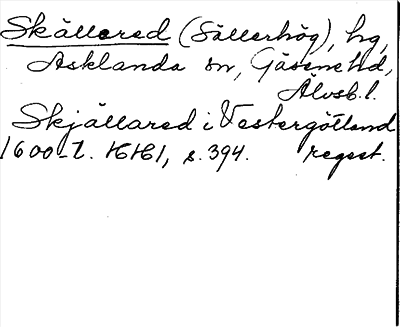 Skållered (Sällerhög), hg,
Asklanda sn, Gäsene hd,
Älvsb. l.
Skjällared i Vestergötland
1600-t. HH1, s. 394. regest.